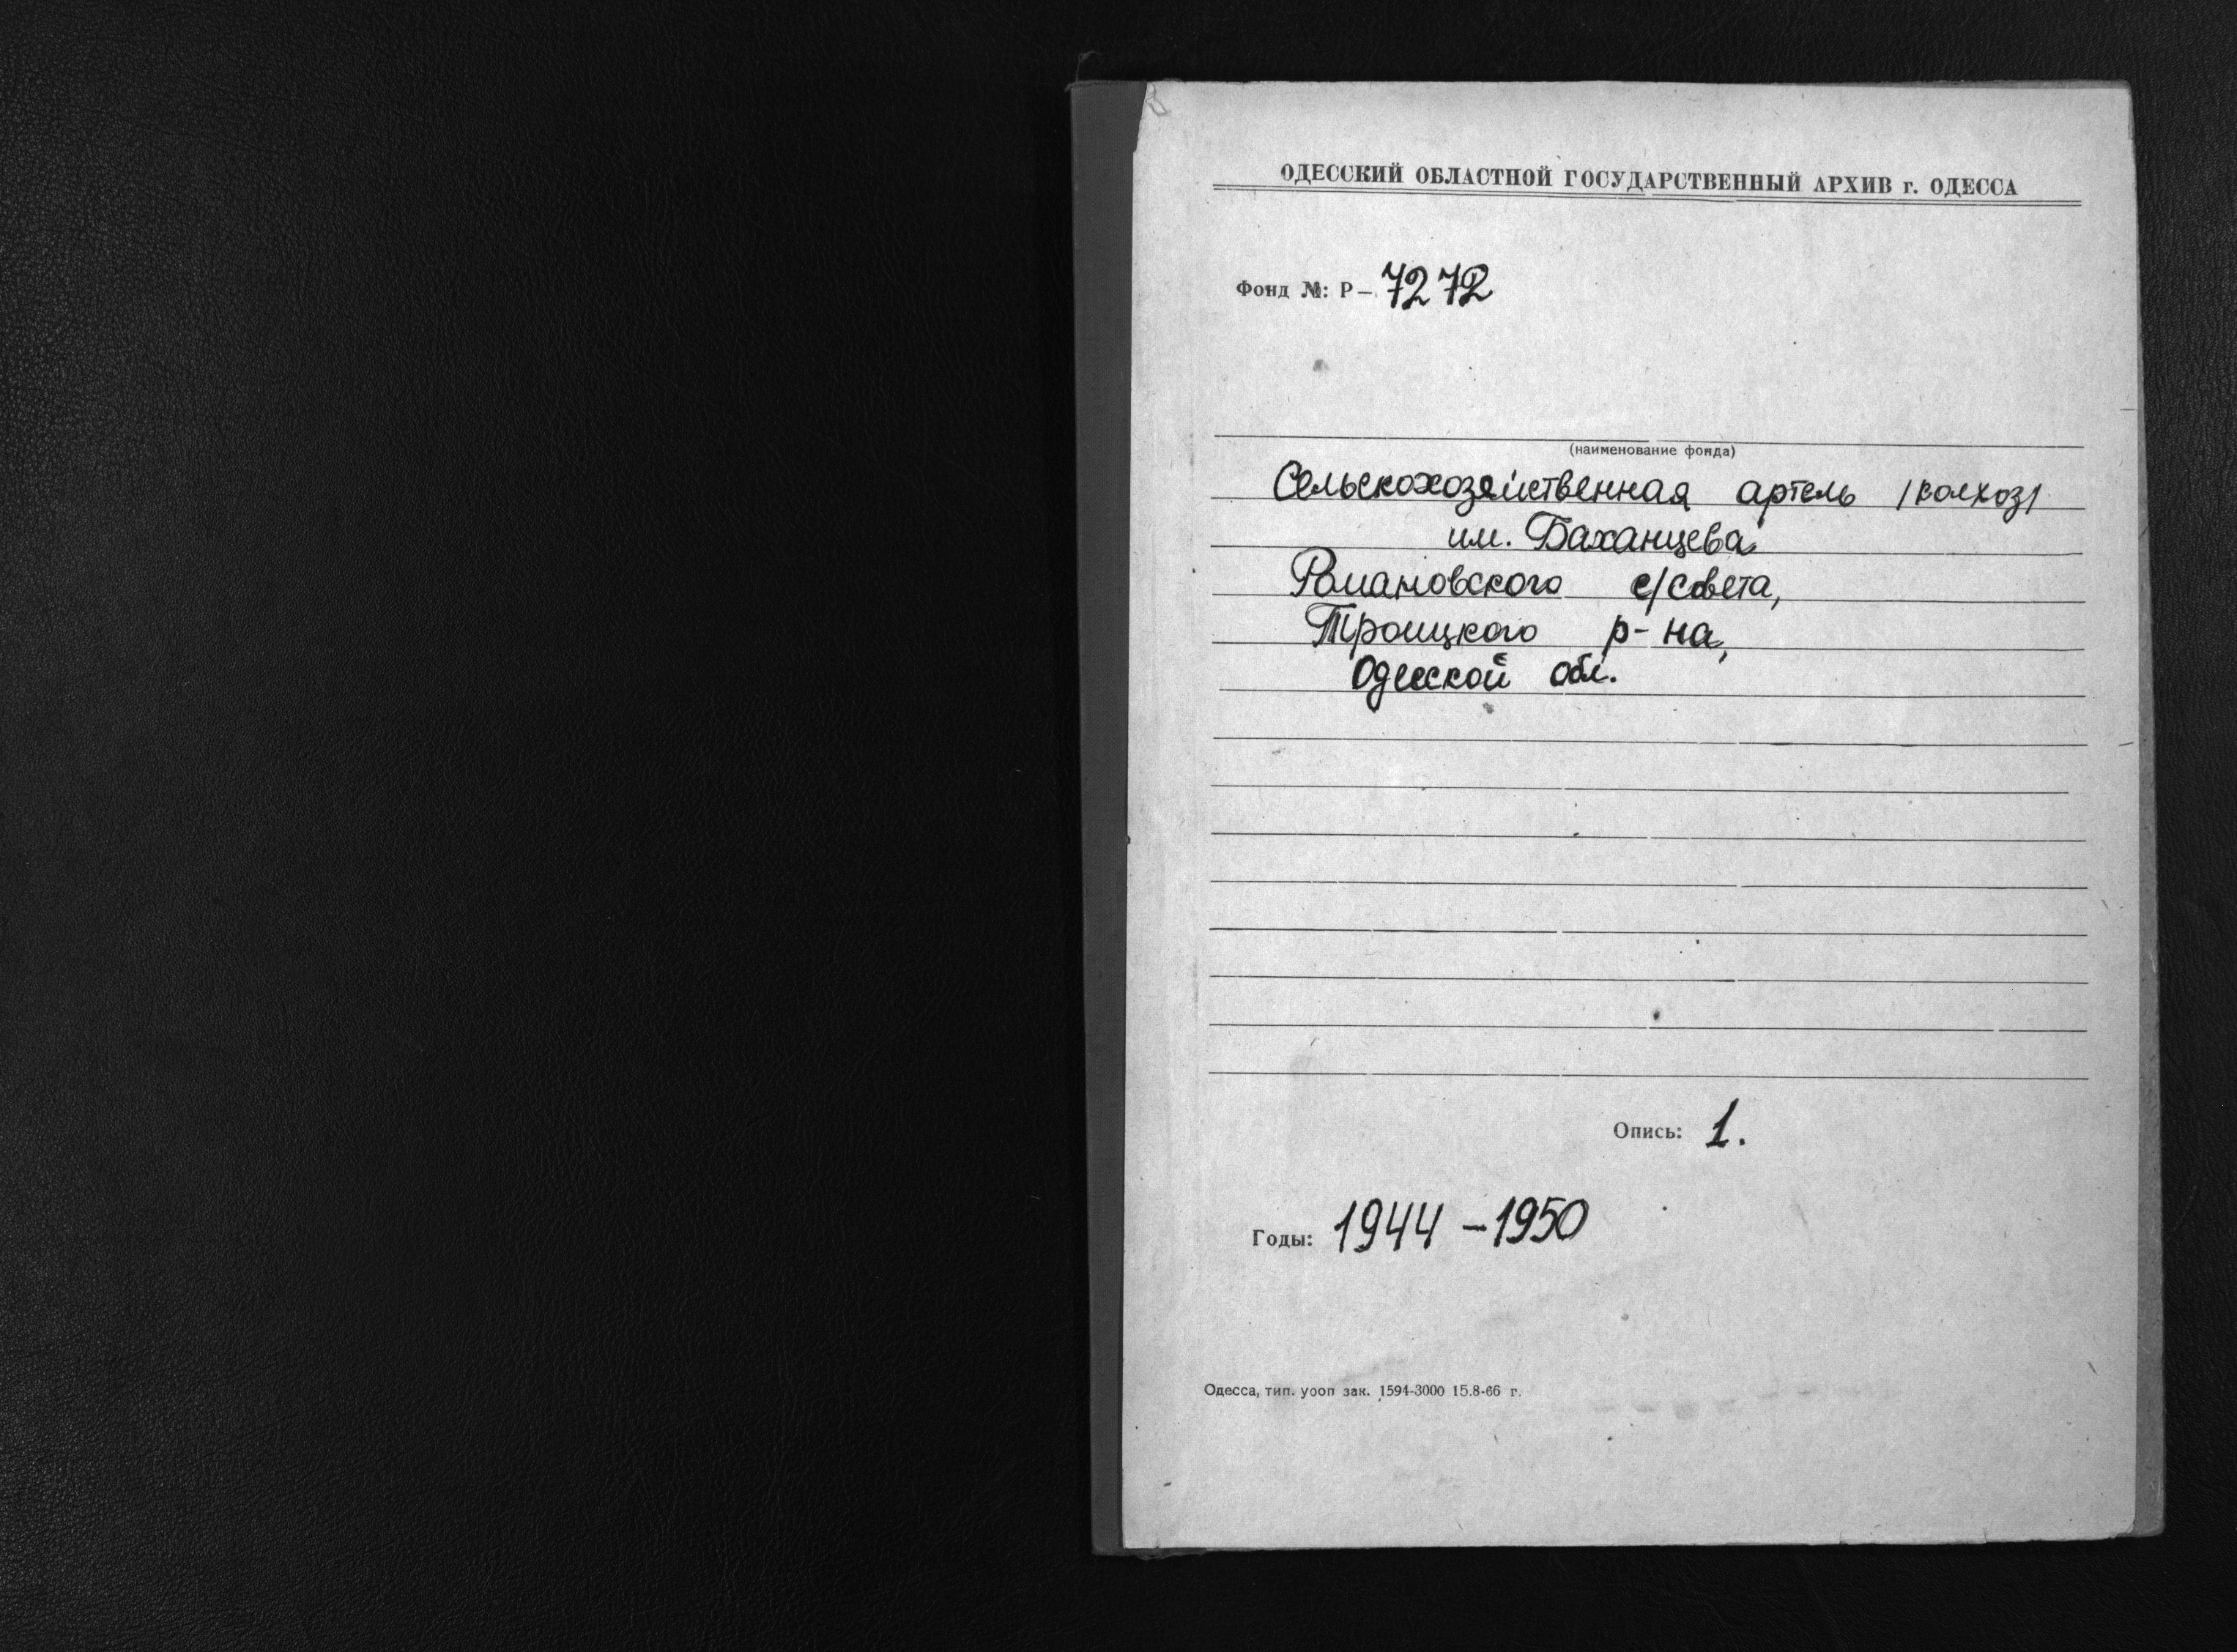 ОДЕССКИЙ ОБЛАСТНОЙ ГОСУДАРСТВЕННЫЙ АРХИВ г. ОДЕССА
Фонд №: Р– 7272
(наименование фонда)
Сельскохозяйственная артель /колхоз/
им. Баханцева
Романовского с/совета,
Троицкого р-на,
Одесской обл.
Опись: 1.
Годы: 1944 – 1950
Одесса, тип. уооп зак. 1594-3000 15.8-66 г.